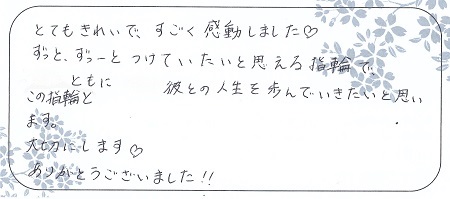 とてもきれいで、すごく感動しました♡
ずっと、ずっーとつけていたいと思える指輪で、
この指輪とともに彼との人生を歩んでいきたいと思い
ます。
大切にします♡
ありがとうございました!!